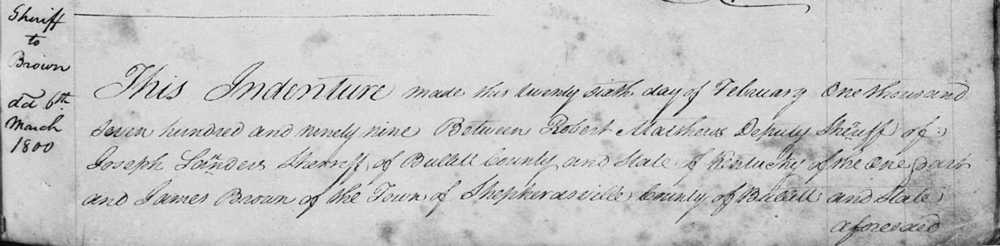 Sheriff
to
Brown
dd 6th
March
1800
This Indenture made this twenty sixth day of February One thousand
seven hundred and ninety nine Between Robert Mathews Deputy Sheriff of
Joseph Sanders Sherriff of Bullitt County and State of Kentucky of the One part
and James Brown of the Town of Shepherdsville County of Bullitt and State
aforesaid